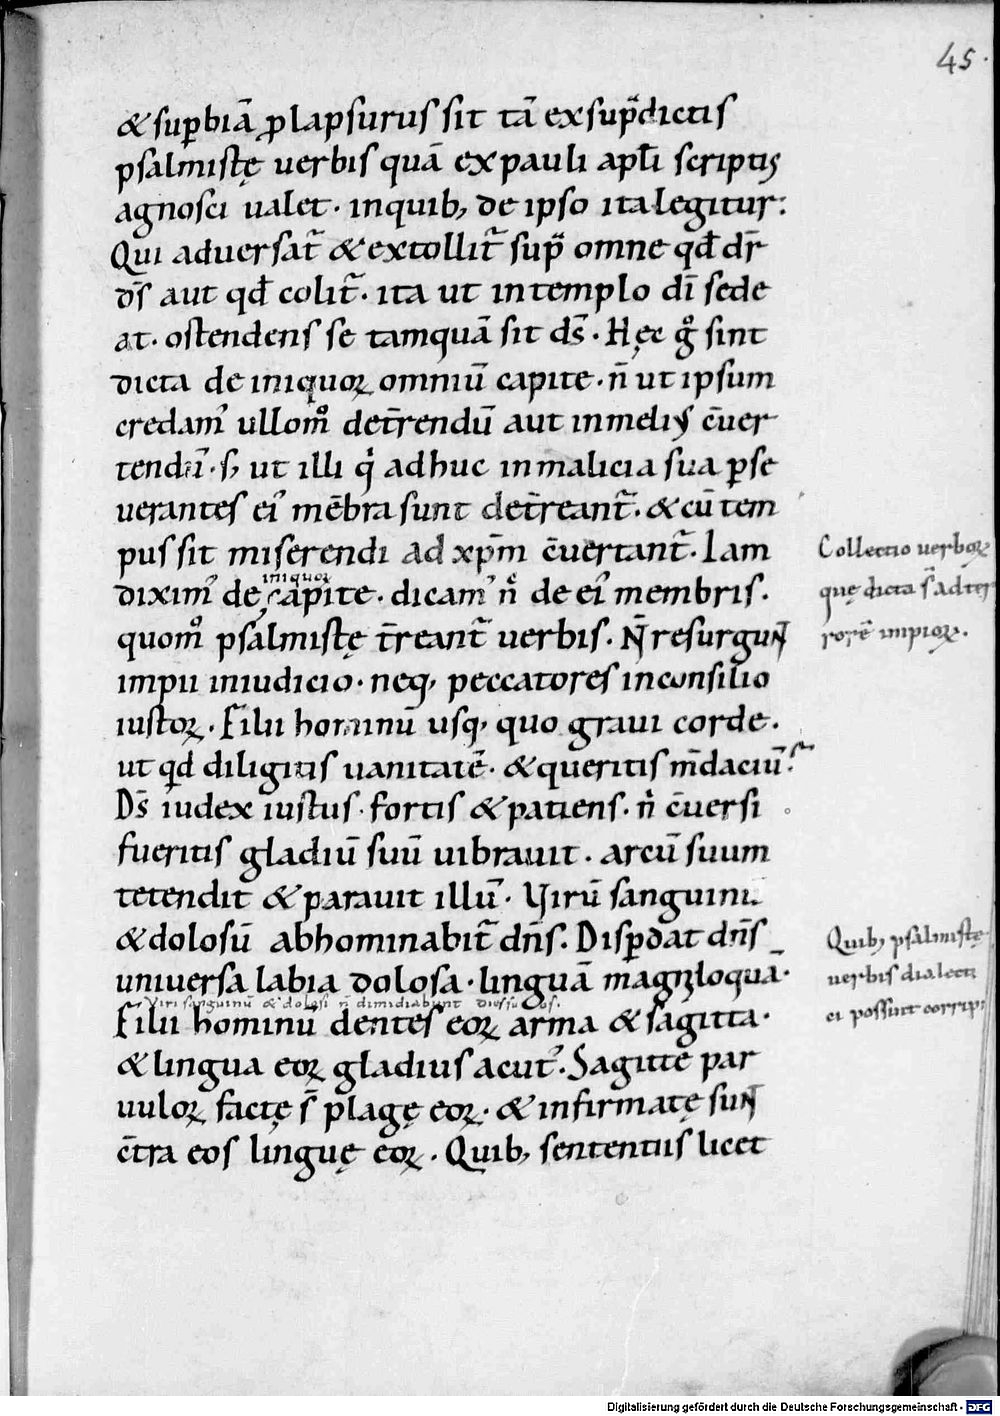 45.
& sup̱biā ꝓlapsurus sit tā ex sup̄dictis
psalmistę uerbis quā ex pauli apl̄i scriptis
agnosci ualet· in quib; de ipso ita legitur:
Qui aduersat̄ & extollit̄ sup̄ omne qd̄ dr̄
ds̄ aut qd̄ colit̄· ita ut in templo dī sede
at· ostendens se tamquā sit ds̄· Hęc gͦ sint
dicta de iniquoꝝ omniū capite· n̄ ut ipsum
credam᾽ ullomͦ det̄rendū aut in meli᾽ ꝯ̄uer
tendū· s; ut illi qͥ adhuc in malicia sua ꝑse
uerantes ei᾽ mēbra sunt det̄reant̄· & cū tem
pus sit miserendi ad xp̄m c̄uertant̄· Iam
iniquoꝝ
dixim᾽ de capite· dicam᾽ nͨ de ei᾽ membris·
quomͦ psalmistę t̄reant̄ uerbis· N̄ resurgunt
impii in iudicio· neq; peccatores in consilio
iustoꝝ· Filii hominū usq; quo graui corde·
ut qd diligitis uanitatē· & queritis m̄daciū·
Ds̄ iudex iustus· fortis & patiens· nͥ c̄uersi
fueritis gladiū suū uibrauit· arcū suum
tetendit & parauit illū· Virū sanguinū
& dolosū abhominabit̄ dn̄s· Disꝑdat dn̄s
uniuersa labia dolosa· linguā magniloquā·
Viri sanguinū & dolosi n̄ dimidiabunt dies suos·
Filii hominū dentes eoꝝ arma & sagitta·
& lingua eoꝝ gladius acut᾽· Sagitte par
uuloꝝ factę s̄ plagę eoꝝ· & infirmatę sunt
c̄tra eos linguę eoꝝ· Quib; sententiis licet
Collectio uerboꝝ
quę dicta s̄ ad ter
rorē impioꝝ·
Quib; psalmistę
uerbis dialecti
ci possint corripi
Digitalisierung gefördert durch die Deutsche Forschungsgemeinschaft - DFG